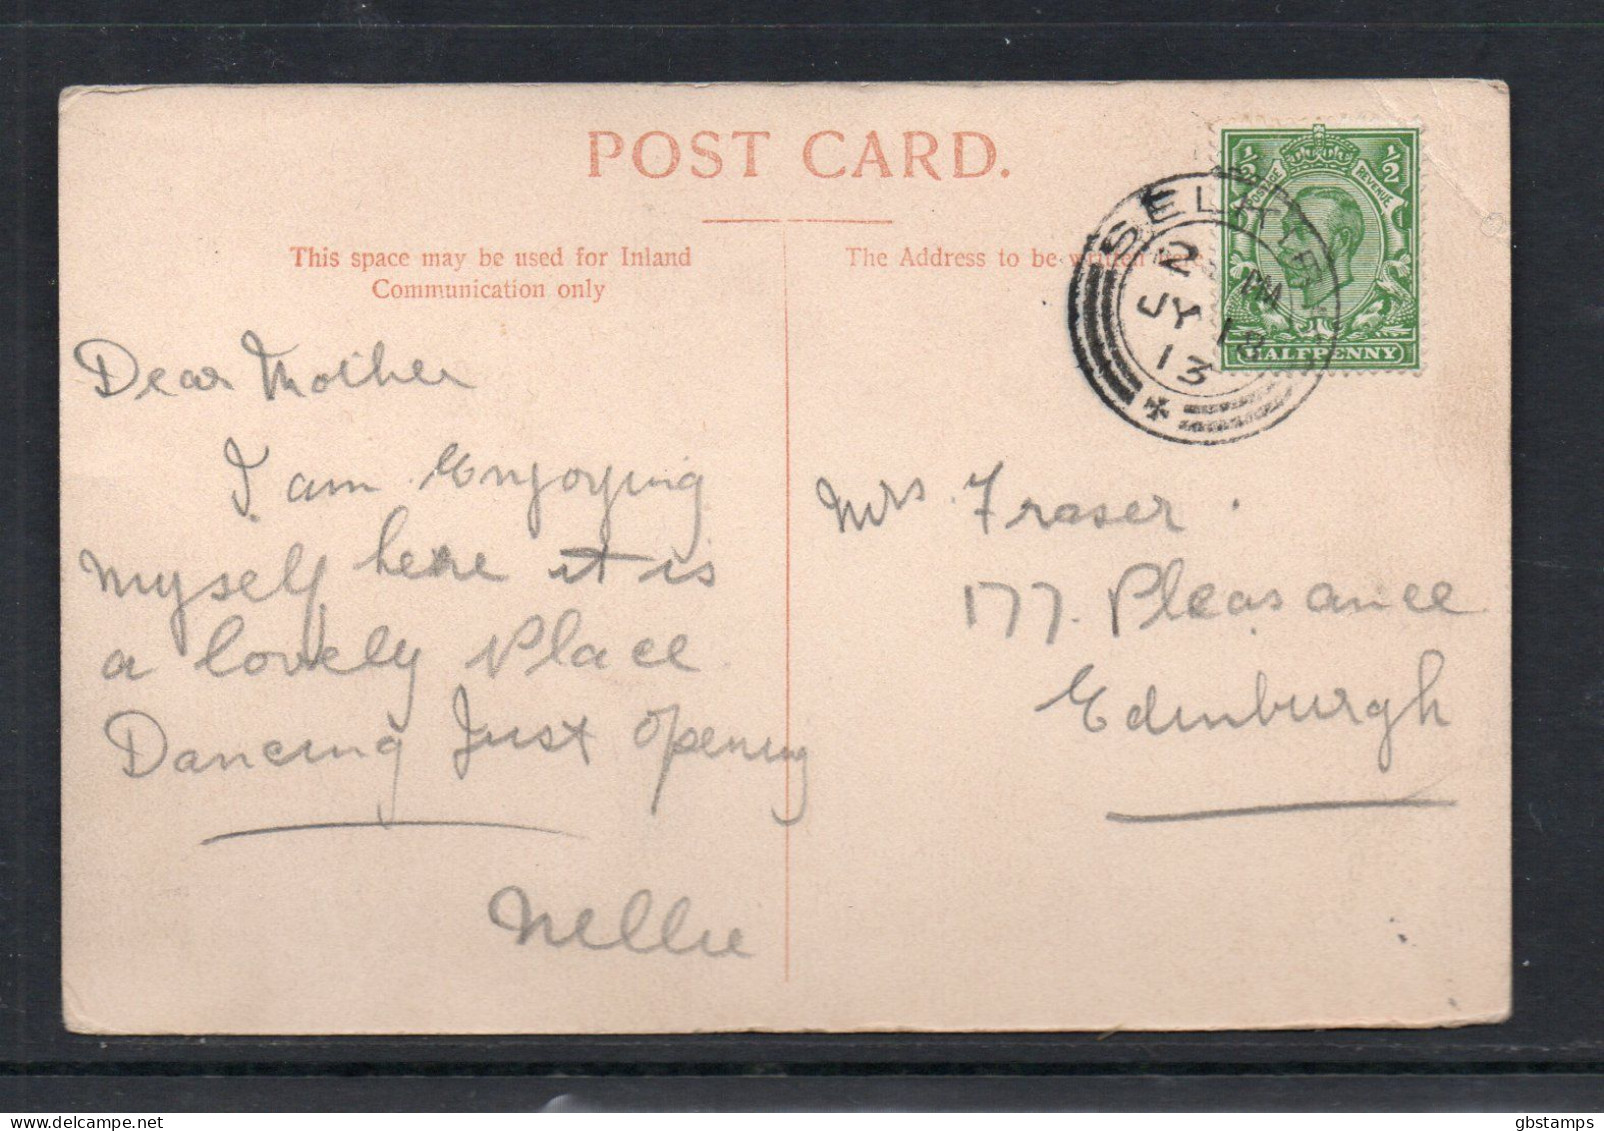 POST CARD.
This space may be used for Inland
Communication only
The Address to be written
Dear Mother
I am Enjoying
myself here it is
a lovely Place
Dancing Just Opening
Nellie
Mrs Fraser.
177. Pleasance
Edinburgh
½ ½
POSTAGE REVENUE
HALFPENNY
SELKIRK
2 PM
JY 18
13
gbstamps